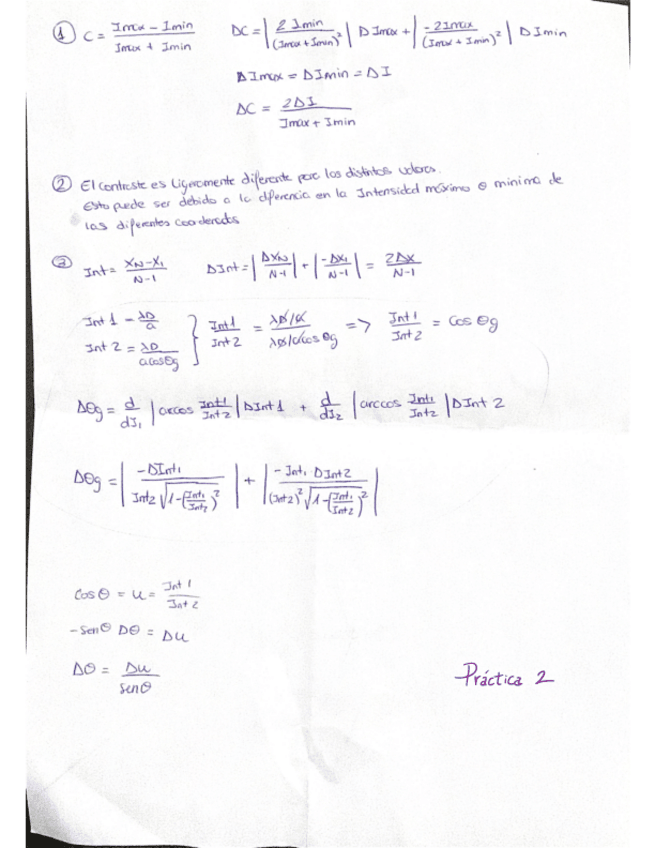 ① C = (Imax − Imin)/(Imax + Imin)   ΔC = |2 Imin/(Imax + Imin)²| ΔImax + |−2Imax/(Imax + Imin)²| ΔImin
ΔImax = ΔImin = ΔI
ΔC = 2ΔI/(Imax + Imin)
② El contraste es ligeramente diferente para los distintos valores.
Esto puede ser debido a la diferencia en la Intensidad máxima o mínima de
las diferentes coordenadas
③ Int = (X_N − X₁)/(N−1)   ΔInt = |ΔX_N/(N−1)| + |−ΔX₁/(N−1)| = 2Δx/(N−1)
Int 1 = λD/a
Int 2 = λD/(a cosθg)
} Int1/Int2 = (λD/a)/(λD/a cosθg) => Int1/Int2 = Cos θg
Δθg = d/dI₁ |arccos Int1/Int2| ΔInt 1 + d/dI₂ |arccos Int₁/Int₂| ΔInt 2
Δθg = |−ΔInt₁/(Int2 √(1−(Int₁/Int₂)²))| + |−Int₁ · ΔInt2/((Int2)² √(1−(Int₁/Int₂)²))|
Cosθ = u = Int 1/Int 2
−senθ Δθ = Δu
Δθ = Δu/senθ
Práctica 2